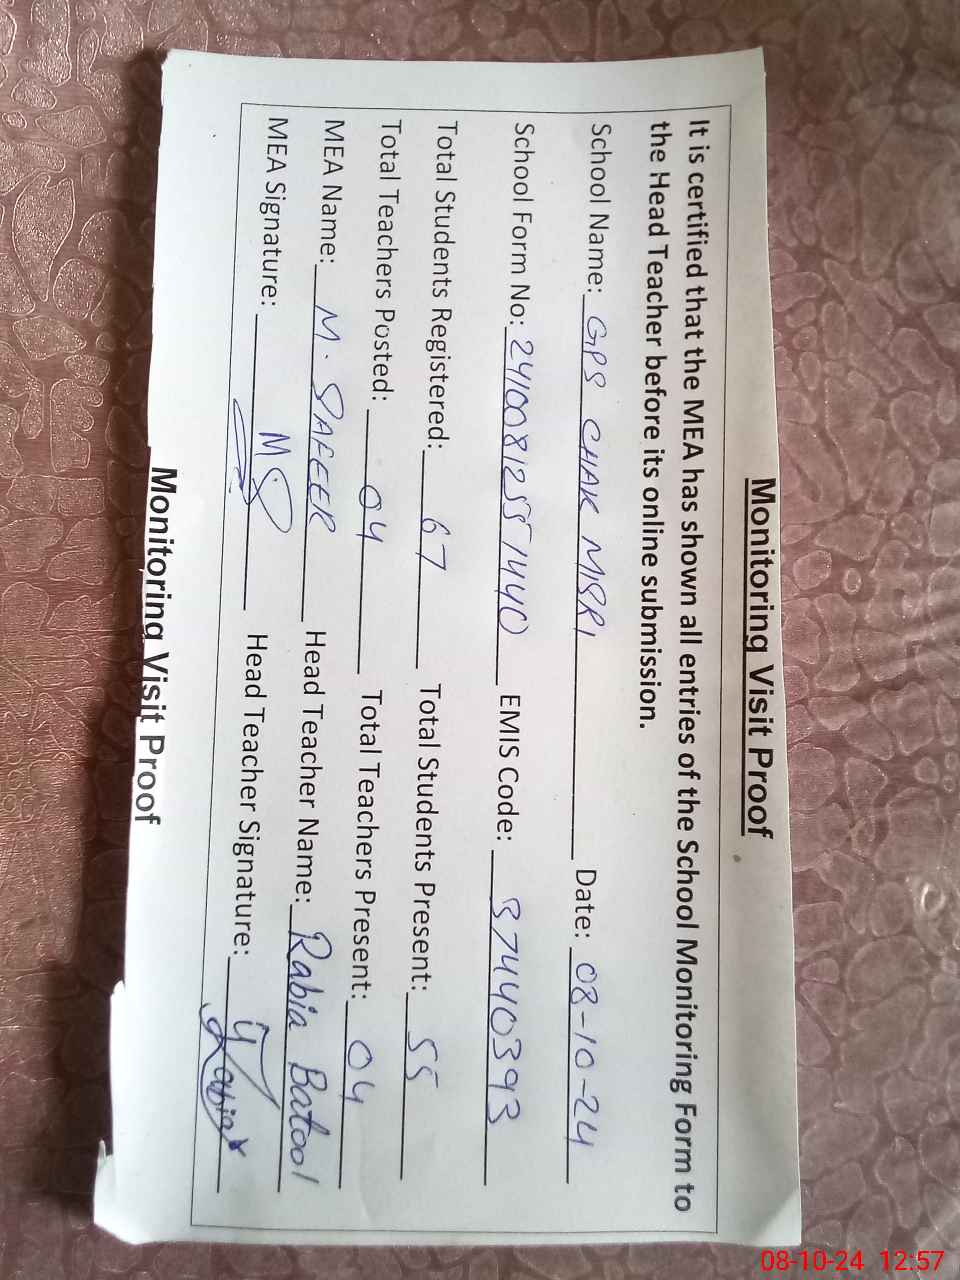 Monitoring Visit Proof
It is certified that the MEA has shown all entries of the School Monitoring Form to
the Head Teacher before its online submission.
School Name: GPS CHAK MISRI Date: 08-10-24
School Form No: 241008125551440 EMIS Code: 37440393
Total Students Registered: 67 Total Students Present: 55
Total Teachers Posted: 04 Total Teachers Present: 04
MEA Name: M. SAFEER Head Teacher Name: Rabia Batool
MEA Signature: M.S Head Teacher Signature: Rabia
Monitoring Visit Proof
08-10-24 12:57